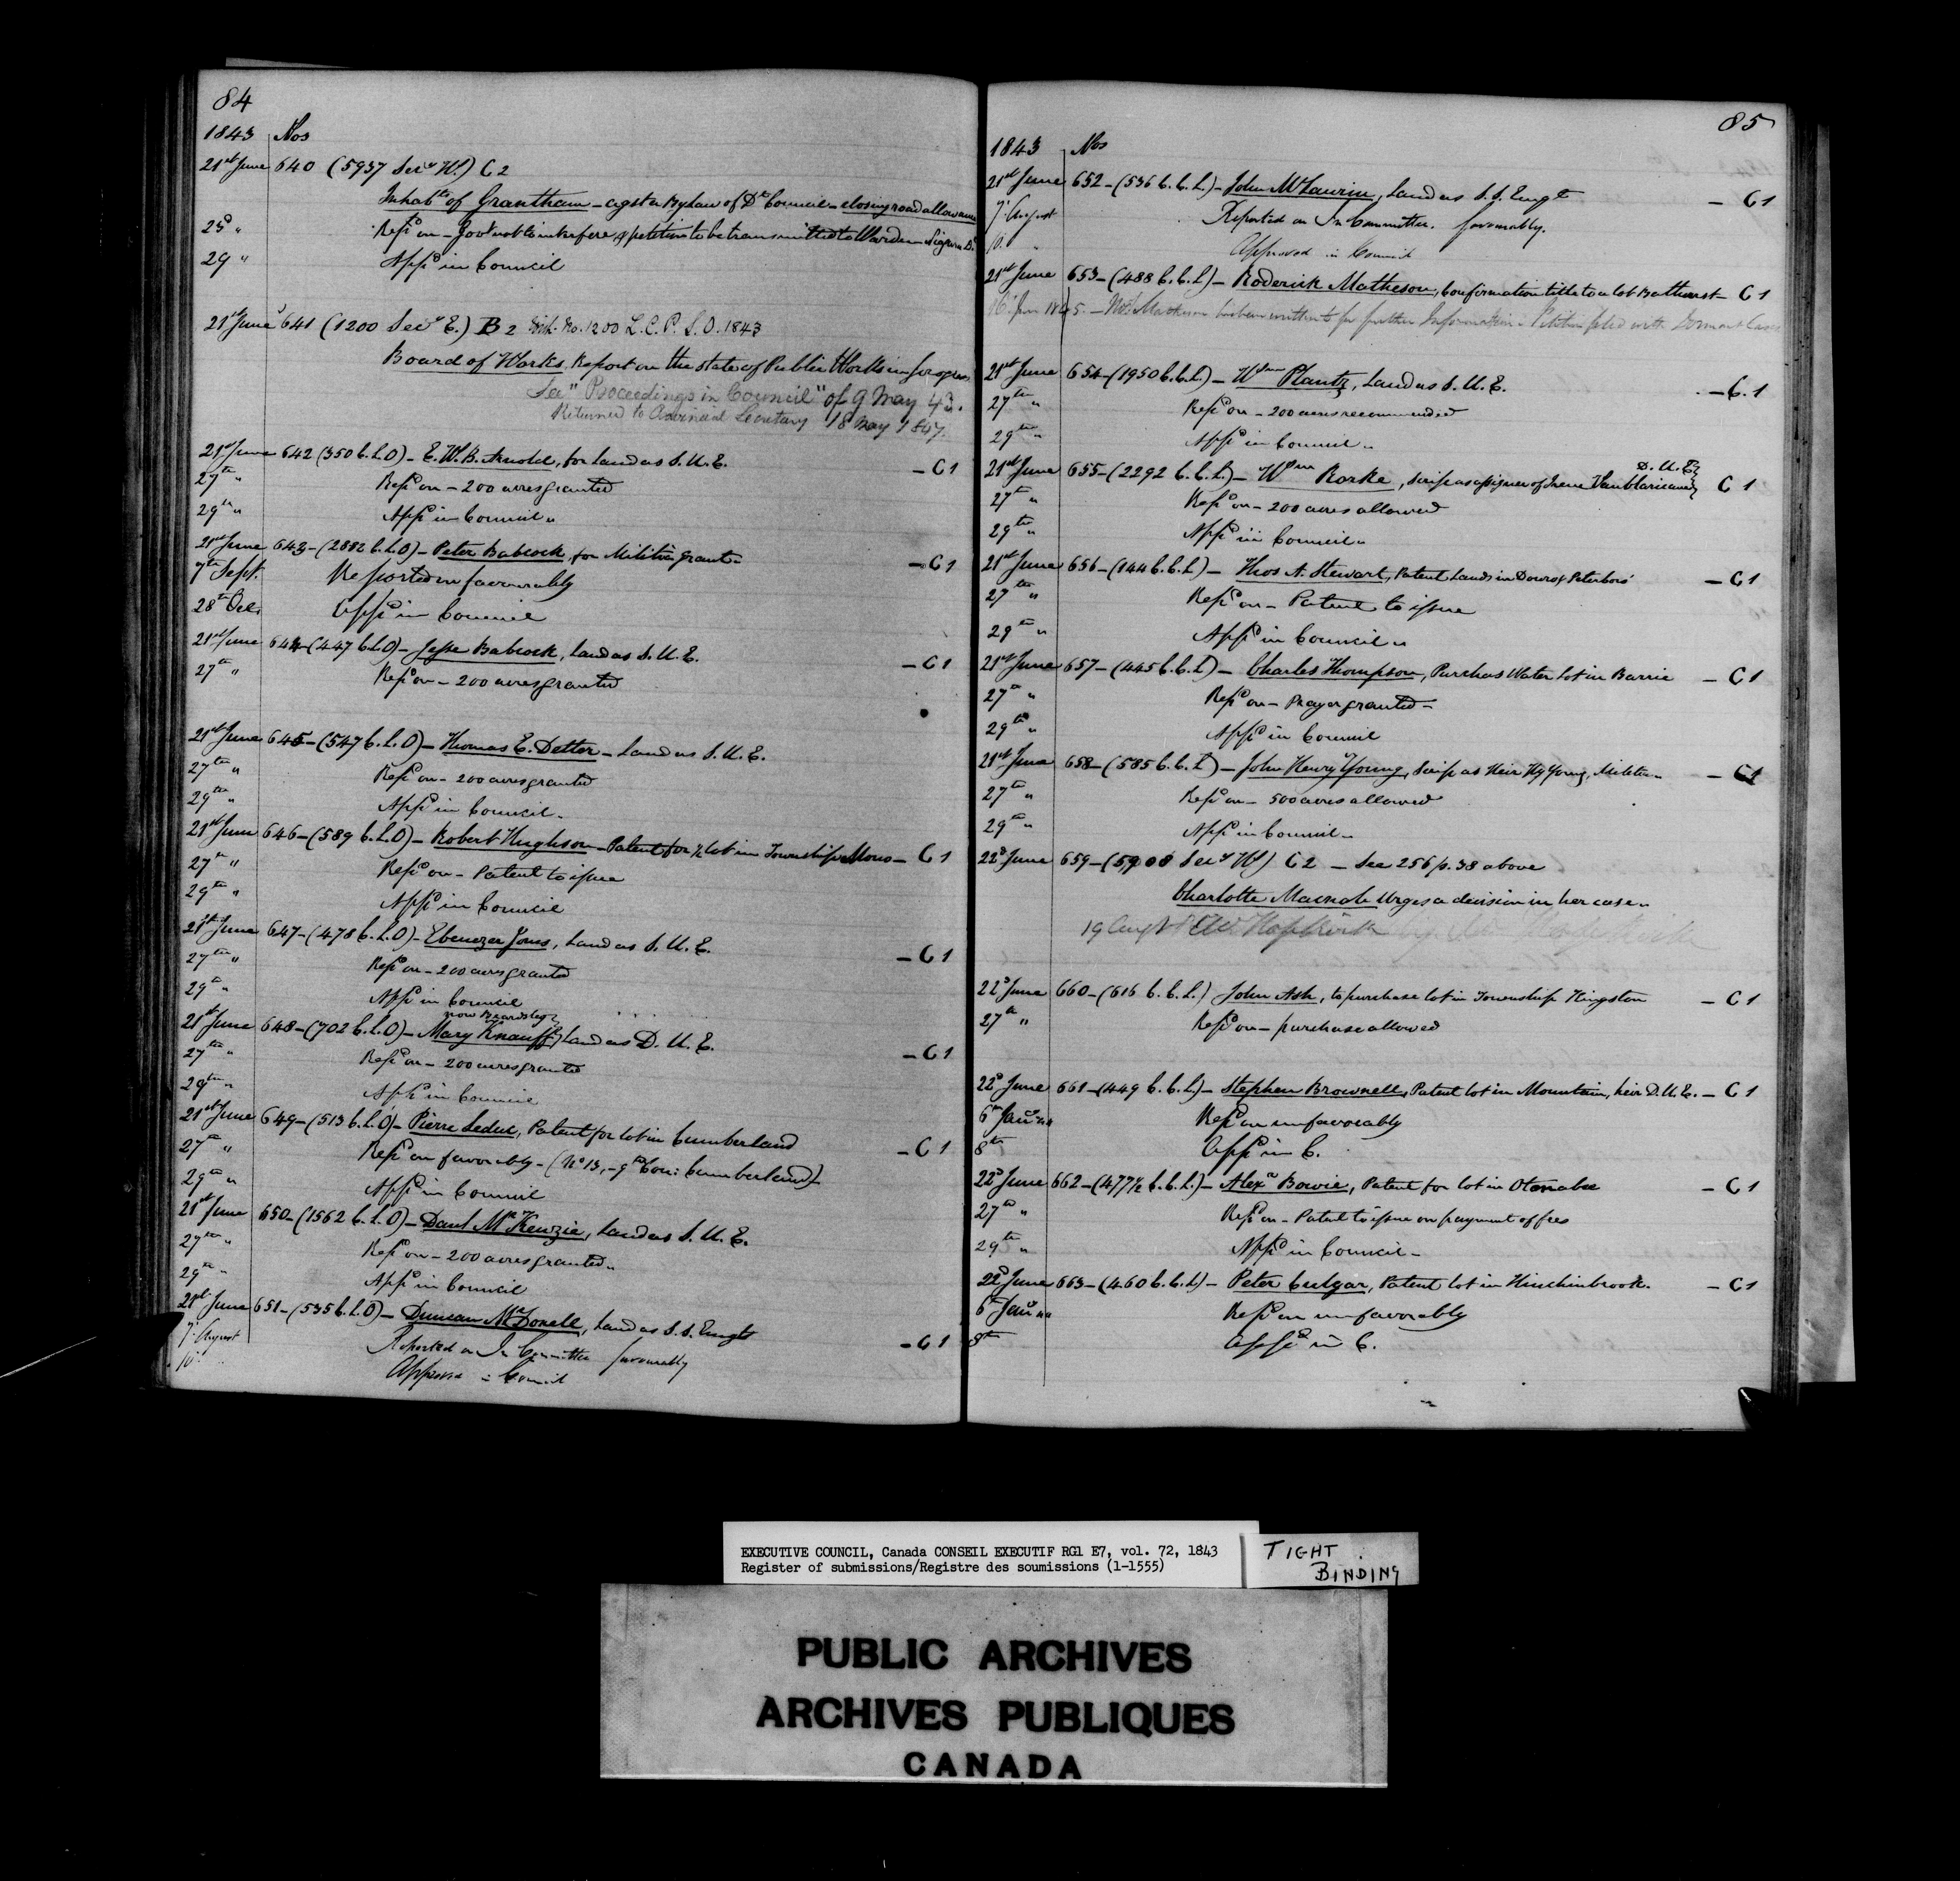 84
1843 Nos
21st June 640 (5937 Secy W.) C2
Inhabts of Grantham - agst a Bylaw of Dt Council - closing road allowance
23d " Repd on - Govt not to interfere & petition to be transmitted to Warden
29 " Appd in Council
21st June 641 (1200 Secy E.) B2 No. 1200 L.C.P.S.O. 1843
Board of Works, Report on the state of Public Works in progress
See "Proceedings in Council" of 9 May 43.
Returned to Provincial Secretary 18 May 1847.
21st June 642 (350 C.L.O) - E.W.B. Arnold, for Land as S.U.E. - C1
27th " Repd on - 200 acres granted
29th " Appd in Council "
21st June 643 - (2882 C.L.O) - Peter Babcock, for Militia grant - - C1
7th Sept. Reported on favourably
28th Oct. Appd in Council
21st June 644 - (447 C.L.O) - Jesse Babcock, Land as S.U.E. - C1
27th " Repd on - 200 acres granted
21st June 645 - (547 C.L.O) - Thomas E. Detlor - Land as S.U.E.
27th " Repd on - 200 acres granted
29th " Appd in Council -
21st June 646 - (589 C.L.O) - Robert Hughson - Patent for ½ lot in Township Mono - C1
27th " Repd on - Patent to issue
29th " Appd in Council
21st June 647 - (478 C.L.O) - Ebenezer Jones, Land as S.U.E. - C1
27th " Repd on - 200 acres granted
29th " Appd in Council
now Beardsley
21st June 648 - (702 C.L.O) - Mary Knauff, Land as D.U.E. - C1
27th " Repd on - 200 acres granted
29th " Appd in Council
21st June 649 - (513 C.L.O) - Pierre Leduc, Patent for lot in Cumberland - C1
27th " Repd on favorably - (No 13, - 9th Con: Cumberland)
29th " Appd in Council
21st June 650 - (1562 C.L.O) - Danl McKenzie, Land as S.U.E.
27th " Repd on - 200 acres granted "
29th " Appd in Council
21st June 651 - (535 C.L.O) - Duncan McDonell, Land as S.S. Engt - C1
7. August Reported on In Committee favourably
10. " Approved in Council
85
1843 Nos
21st June 652 - (536 C.C.L.) - John McLaurin, Land as S.S. Engt - C1
7. August Reported on In Committee. favourably.
10. " Approved in Council
21st June 653 - (488 C.C.L) - Roderick Matheson, Confirmation title to a lot Bathurst - C1
16. Jan 1845. - Mr Matheson has been written to for further Information - Petition filed with Dormant Cases
21st June 654 - (1950 C.C.L.) - Wm Plantz, Land as S.U.E. - C.1
27th " Repd on - 200 acres recommended
29th " Appd in Council "
D.U.E.
21st June 655 - (2292 C.C.L.) - Wm Rorke, Scrip as assignee of Irene C1
27th " Repd on - 200 acres allowed
29th " Appd in Council "
21st June 656 - (144 C.C.L) - Thos A. Stewart, Patent Lands in Douro & Peterboro' - C1
27th " Repd on - Patent to issue
29th " Appd in Council "
21st June 657 - (445 C.C.L) - Charles Thompson, Purchas Water lot in Barrie - C1
27th " Repd on - Prayer granted -
29th " Appd in Council
21st June 658 - (585 C.C.L) - John Henry Young, Scrip as Heir Hy Young, Militia - - C1
27th " Repd on - 500 acres allowed
29th " Appd in Council -
22d June 659 - (5908 Secy W) C2 - See 256 p. 38 above
Charlotte Macnab Urges a decision in her case -
19 Augt Hopkirk
22d June 660 - (616 C.C.L.) John Ash, to purchase lot in Township Kingston - C1
27th " Repd on - purchase allowed
22d June 661 - (449 C.C.L.) - Stephen Brownell, Patent lot in Mountain, heir D.U.E. - C1
6th Jany 44 Repd on unfavorably
8th Appd in C.
22d June 662 - (477½ C.C.L.) - Alexr Bowie, Patent for lot in Otonabee - C1
27th " Repd on - Patent to issue on payment of fees
29th " Appd in Council -
22d June 663 - (460 C.C.L) - Peter Culgar, Patent lot in Hinchinbrook. - C1
6th Jany 44 Repd on unfavorably
8th Appd in C.
EXECUTIVE COUNCIL, Canada CONSEIL EXECUTIF RG1 E7, vol. 72, 1843
Register of submissions/Registre des soumissions (1-1555)
TIGHT
BINDING
PUBLIC ARCHIVES
ARCHIVES PUBLIQUES
CANADA